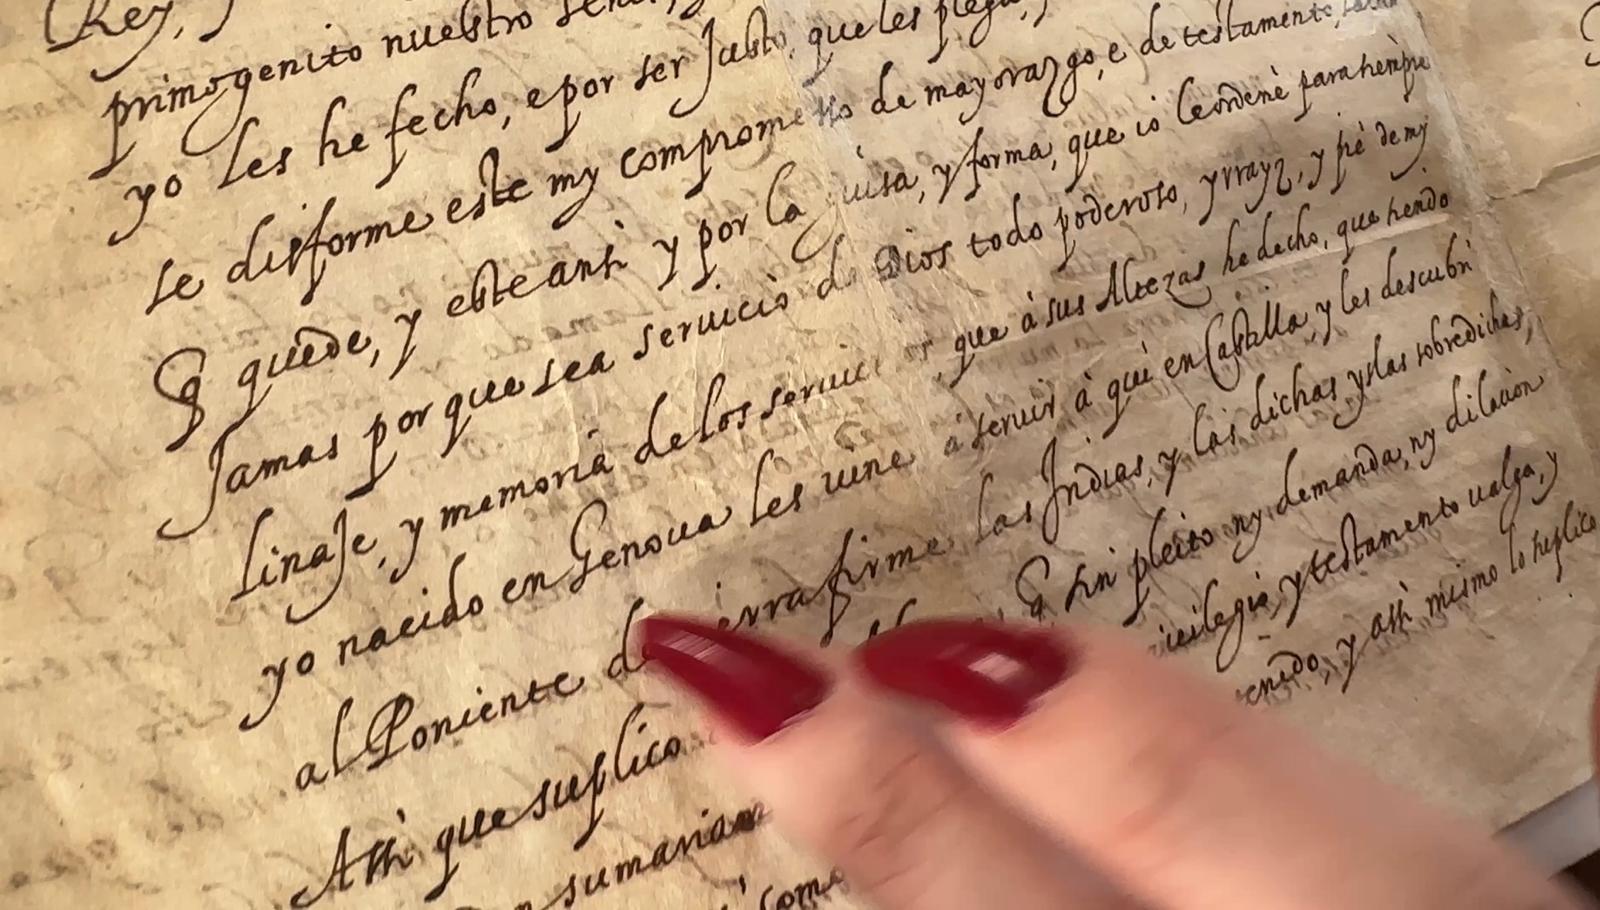 Rey,
primogenito nuestro señor,
yo les he fecho, e por ser Justo, que les plega,
se disforme este my comprometto de mayorazgo, e de testamento,
q quede, y este ansi y por la guisa, y forma, que io le ordenè para sienpre
Jamas por que sea seruicio de Dios todo poderoso, y rrayz, y piè de my
linaje, y memoria de los seruicios, que à sus Altezas he decho, que siendo
yo nacido en Genoua les uine a seruir à qui en Castilla, y les descubri
al Poniente de tierra firme las Indias, y las dichas yslas sobredichas,
Assi que suplico q sin pleito ny demanda, ny dilacion
sumariam
y testamento ualga, y
como
y assi mismo lo suplico